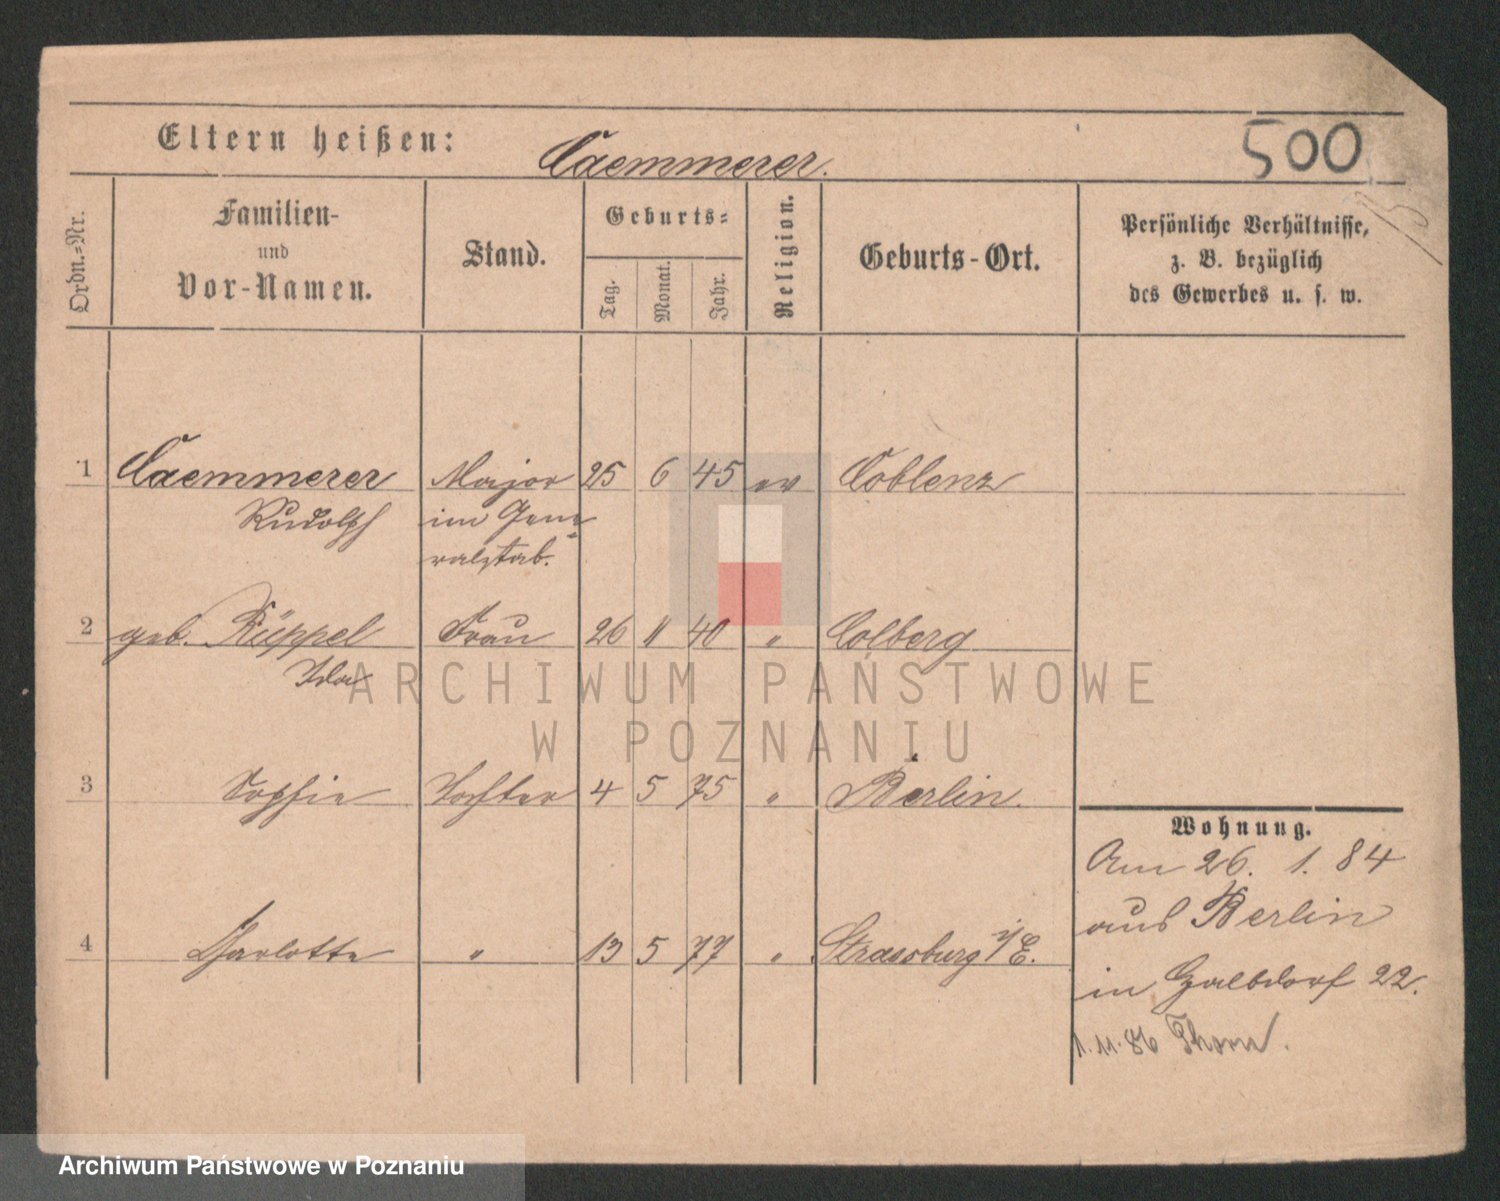 Eltern heißen: Caemmerer. 500
Ordn.-Nr. Familien- und Vor-Namen. Stand. Geburts- Tag. Monat. Jahr. Religion. Geburts-Ort. Persönliche Verhältnisse, z. B. bezüglich des Gewerbes u. s. w.
1 Caemmerer Major 25 6 45 ev Coblenz
Rudolph im Gene-
ralstab.
2 geb. Rüppel Frau 26 11 40 " Colberg
Ida
ARCHIWUM PAŃSTWOWE
W POZNANIU
3 Sophie Tochter 4 5 75 " Berlin.
Wohnung.
Am 26. 1. 84
aus Berlin
4 Charlotte " 13 5 77 " Strassburg i/E.
in Halbdorf 22.
1.11.86 Thorn.
Archiwum Państwowe w Poznaniu